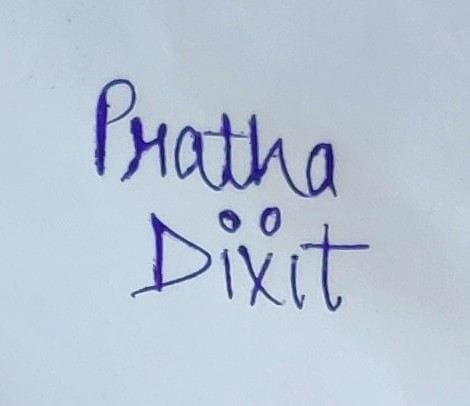 Pratha
Dixit